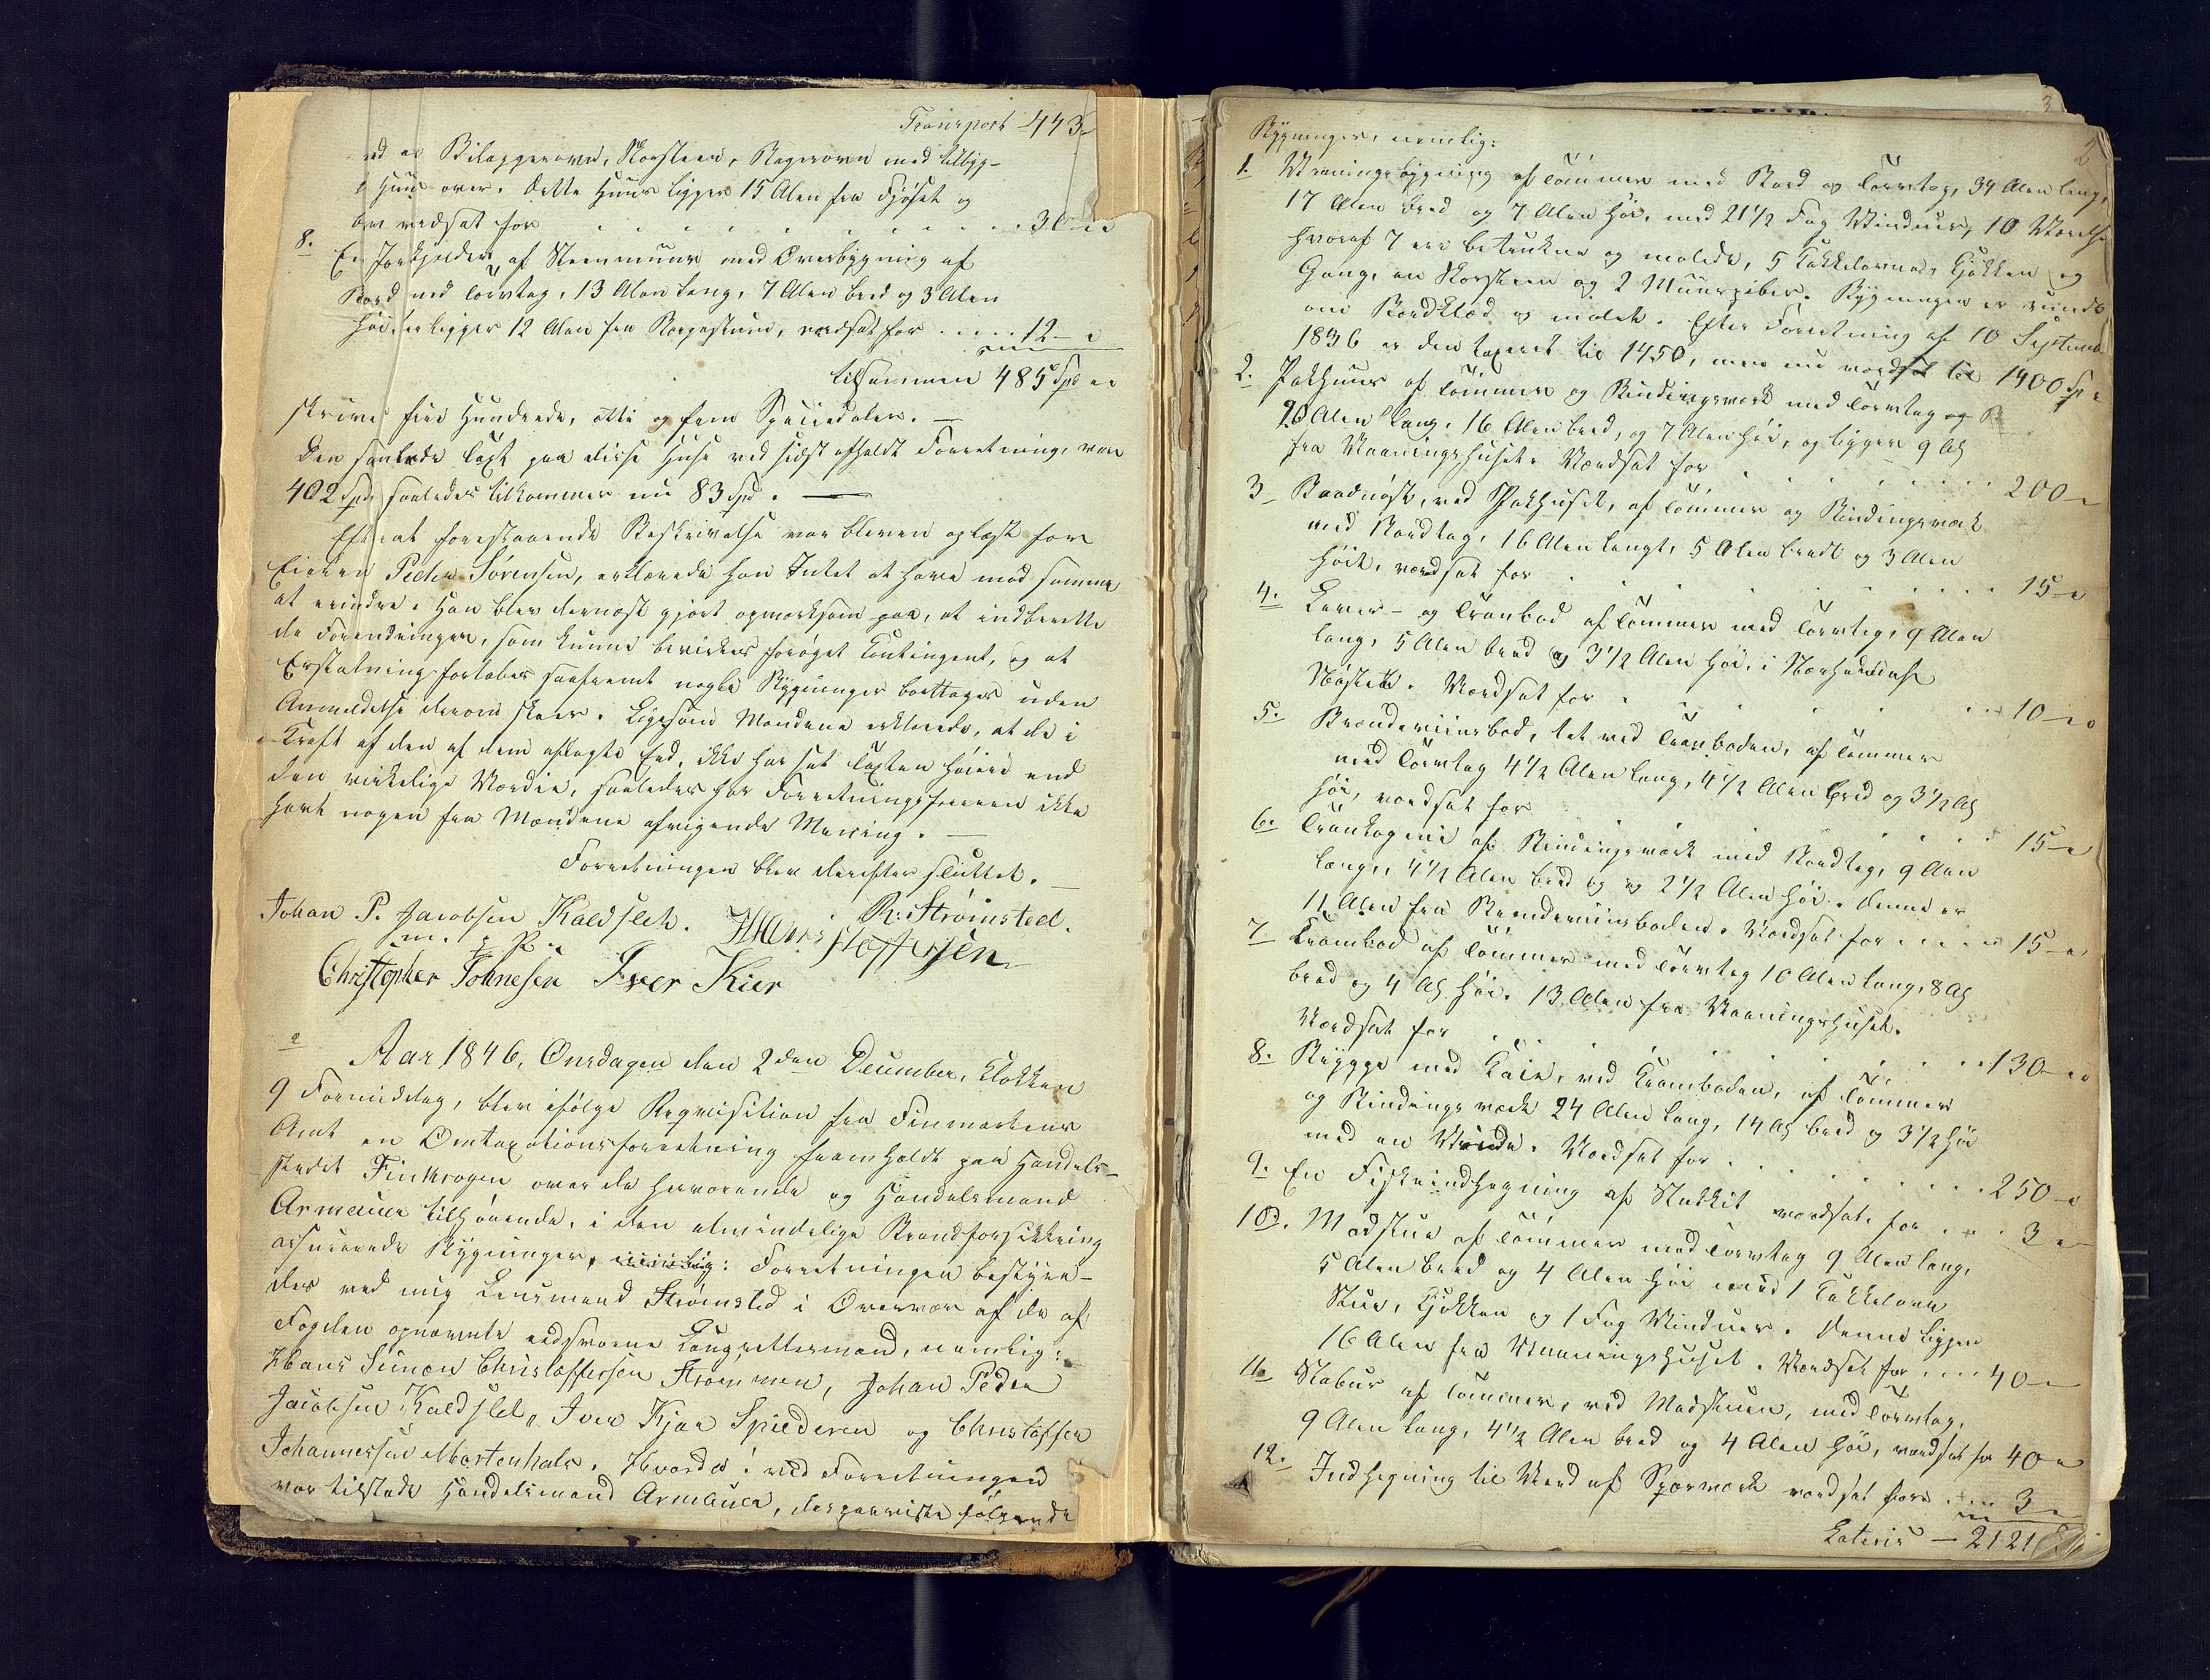 Transport 443
ed en Bilæggerovn, Skorsteen, Bagerovn med tilbyg-
Huus over. Dette Huus ligger 15 Alen fra Fjøset og
bev værdsat for . . . . . . . . . . . 30
8. En Jordkjelder af Steenmuur med Overbygning af
Bord med Torvtag, 13 Alen lang, 7 Alen bred og 3 Alen
høi der ligger 12 Alen fra Borgestuen, værdsat for . . . . 12
tilsammen 485 Spd
skriver fire Hundrede, otti og fem Speciedaler. —
Den samlede Taxt paa disse Huse ved sidst afholdt Forretning, var
402 Spd, saaledes tilkommer nu 83 Spd. —
Efterat forestaaende Beskrivelse var bleven oplæst for
Eieren Peder Sørensen, erklærede han Intet at have mod samme
at erindre. Han blev dernæst gjort opmærksom paa, at indberette
de Forandringer, som kunne bevirke forøget Contingent, og at
Erstatning fortabes saafremt nogle Bygninger borttages uden
Anmeldelse derom skeer. Ligesom Mændene erklærede, at de i
Kraft af den af dem aflagte Eed, ikke har sat Taxten høiere end
den virkelige Værdie, saaledes har Forretningsføreren ikke
havt nogen fra Mændene afvigende Mening. —
Forretningen blev derefter sluttet. —
Johan P. Jacobsen Kaldslet. R. Strømsted.
m. f. P. Hans Stoffersen
Christopher Johnesen Iver Kiær
Aar 1846, Onsdagen den 2den December, Klokken
9 Formiddag, blev ifølge Requisition fra Finmarkens
Amt en Omtaxationsforretning fremholdt paa Handels-
stedet Finkrogen over de herværende og Handelsmand
Armauer tilhørende, i den almindelige Brandforsikkring
assurerede Bygninger, nemlig: Forretningen bestyre-
des ved mig Lensmand Strømsted i Overvær af de af
Fogden opnævnte eedsvorne Laugrettesmænd, nemlig:
Hans Simon Christoffersen Strømmen, Johan Peder
Jacobsen Kaldslet, Iver Kjær Spilderen og Christoffer
Johannessen Mortenhals. Hvorda! ved Forretningen
var tilstede Handelsmand Armauer, der paaviste følgende
2
Bygninger, nemlig:
1. Vaaningsbygning af Tømmer med Bord og Torvtag, 34 Alen lang,
17 Alen bred og 7 Alen høi, med 21 1/2 Fag Vinduer, 10 Værelse
hvoraf 7 ere betrukne og malede, 5 Kakkelovne, Kjøkken og
Gang, en Skorsteen og 2 Muurpiber. Bygningen er rundt
om Bordklæd og malet. Efter Forretning af 10 Septemb
1836 er den taxeret til 1450, men nu værdsat til 1400 Sp
2. Pakhuus af Tømmer og Bindingsværk med Torvtag og B
20 Alen lang, 16 Alen bred, og 7 Alen høi, og ligger 9 Al
fra Vaaningshuset. Værdsat for . . . . . . 200
3 Baadnøst, ved Pakhuset, af Tømmer og Bindingsværk
med Bordtag, 16 Alen langt, 5 Alen bredt og 3 Alen
høit, værdsat for . . . . . . . . 15
4. Lever- og Tranbod af Tømmer med Torvtag, 9 Alen
lang, 5 Alen bred og 3 1/2 Alen høi, i Nærheden af
Nøstet. Værdsat for . . . . . . . 10
5. Brændeviinsbod, tet ved Tranboden, af Tømmer
med Torvtag 4 1/2 Alen lang, 4 1/2 Alen bred og 3 1/2 Al
høi, værdsat for . . . . . . . 15
6. Trankogerie af Bindingsværk med Bordtag, 9 Alen
lang, 4 1/2 Alen bred og 2 1/2 Alen høi. Denne er
11 Alen fra Brændeviinsboden. Værdsat for . . . . 15
7 Krambod af Tømmer med Torvtag 10 Alen lang, 8 Al
bred og 4 Al høi. 13 Alen fra Vaaningshuset.
Værdsat for . . . . . . . 130
8. Brygge med Kaie, ved Kramboden, af Tømmer
og Bindingsværk 24 Alen lang, 14 Al bred og 3 1/2 høi
med en Vinde. Værdsat for . . . . . . 250
9. En Fiskeindhegning af Stakkit værdsat for . . . 3
10. Madstue af Tømmer med Torvtag 9 Alen lang,
5 Alen bred og 4 Alen høi med 1 Kakkelovn
Stue, Kjøkken og 1 Fag Vinduer. Denne ligger
16 Alen fra Vaaningshuset. Værdsat for . . . . 40
11. Stabur af Tømmer, ved Madstuen, med Torvtag,
9 Alen lang, 4 1/2 Alen bred og 4 Alen høi, værdsat for 40
12. Indhegning til Brænd af Sparværk værdsat for . . . 3
Lateris — 2121